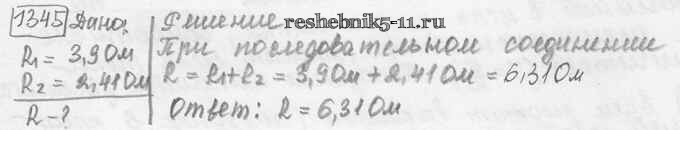 1345 Дано: Решение reshebnik5-11.ru
R₁ = 3,9 Ом При последовательном соединении
R₂ = 2,41 Ом R = R₁ + R₂ = 3,9 Ом + 2,41 Ом = 6,31 Ом
R - ? Ответ: R = 6,31 Ом